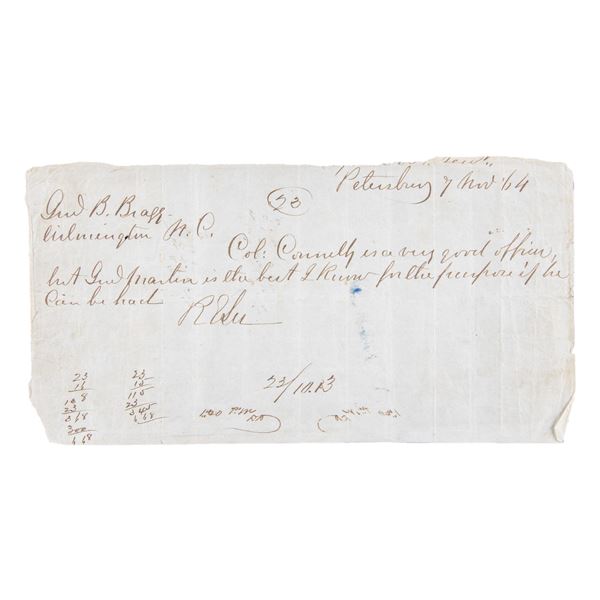 Petersburg 7 Nov '64
(23)
Genl B. Bragg
Wilmington N. C.
Col: Connelly is a very good officer,
but Genl Martin is the best I Know for the purpose if he
Can be had
R E Lee
23/10.13
23
16
23
15
115
23
345
368
300
668